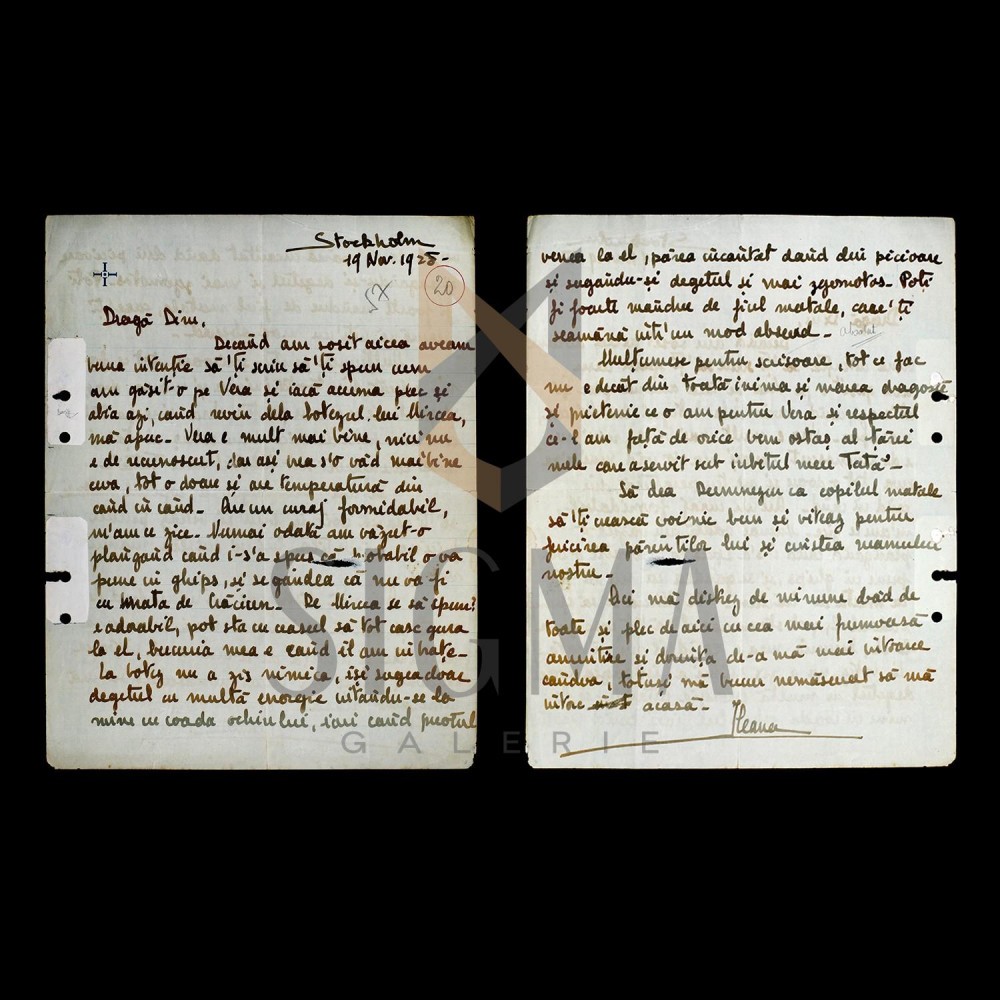 Stockholm
19 Nov. 1925-
57
20
Dragă Dim,
Decând am sosit aicea aveam
buna intenție să'ți scriu să'ți spun cum
am găsit-o pe Vera și iacă acuma plec și
abia azi, când reviu dela botezul lui Mircea,
mă apuc- Vera e mult mai bine, nici nu
e de recunoscut, darași vrea s'o văd mai bine
ceva, tot o doare și are temperatură din
când în când- Are un curaj formidabil,
n'am ce zice. Numai odată am văzut-o
plângând când i-s'a spus că probabil o va
pune în ghips, și se gândea că nu va fi
cu de Crăciun. - De Mircea ce să spun?
e adorabil, pot sta cu ceasul să tot casc gura
la el, bucuria mea e când îl am in brațe-
La botez nu a zis nimica, iși sugea doar
degetul cu multă energie uitându-se la
mine cu coada ochiului, iari când preotul
venea la el, părea incântat dând din picioare
și sugându-și degetul și mai zgomotos- Poți
fi foarte mândru de fiul matale, care'ți
seamănă intr'un mod absurd -
absolut
Mulțumesc pentru scrisoare, tot ce fac
nu e decât din toată inima și marea dragoste
și prietenie ce o am pentru Vera și respectul
ce-l am față de orice bun ostaș al țării
mele care a servit sub iubitul meu Tată-
Să dea Dumnezeu ca copilul matale
să'ți crească voinic bun și viteaz pentru
fericirea părinților lui și cinstea neamului
nostru -
Aci mă de minune dar de
toate și plec de aici cu cea mai frumoasă
amintire și dorința de-a mă mai intoarce
cândva, totuși mă bucur nemăsurat să mă
intorc acasă-
Ileana
SIGMA
GALERIE